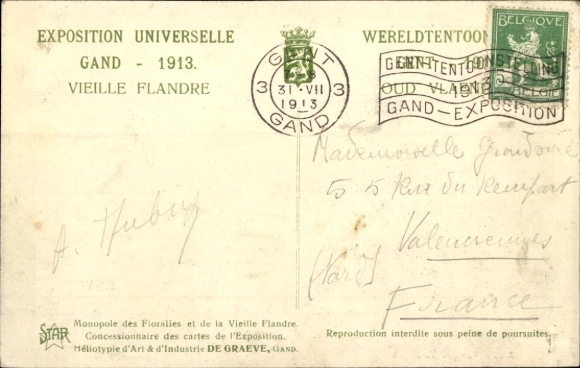 EXPOSITION UNIVERSELLE
GAND - 1913.
VIEILLE FLANDRE
WERELDTENTOON
GENT
OUD VLAEN
GENT
3 3
31 · VII
1913
GAND
GENT-TENTOONSTELLING
1913
GAND-EXPOSITION
BELGIQUE
BELGIË
Mademoiselle
55 Rue du Rempart
Valenciennes
France
A. Hubin
STAR
Monopole des Floralies et de la Vieille Flandre.
Concessionnaire des cartes de l'Exposition.
Héliotypie d'Art & d'Industrie DE GRAEVE, GAND.
Reproduction interdite sous peine de poursuites.